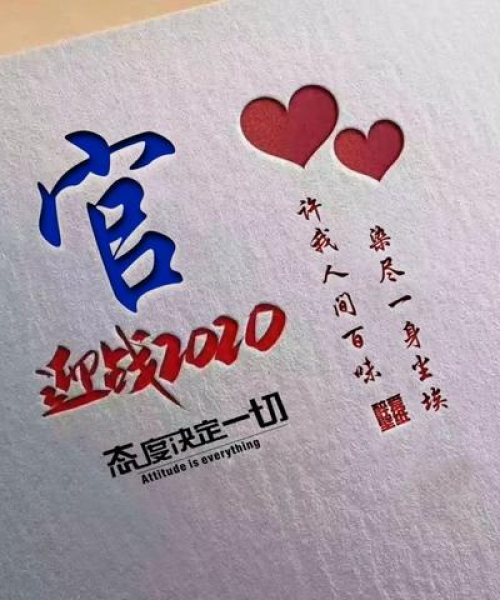 官
迎战2020
态度决定一切
Attitude is everything
许我人间百味
染尽一身尘埃